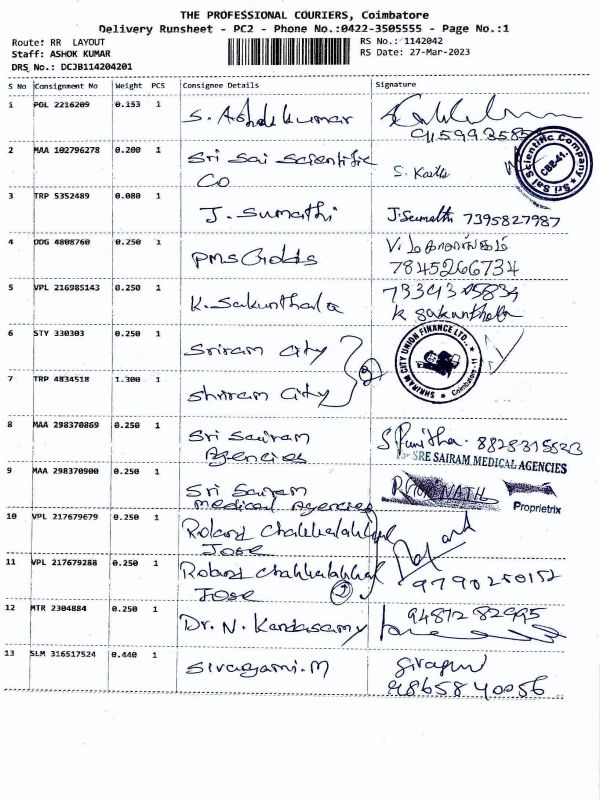 THE PROFESSIONAL COURIERS, Coimbatore
Delivery Runsheet - PC2 - Phone No.:0422-3505555 - Page No.:1
Route: RR LAYOUT
Staff: ASHOK KUMAR
DRS No.: DCJB114204201
RS No.: 1142042
RS Date: 27-Mar-2023
S No Consignment No Weight PCS Consignee Details Signature
1 POL 2216209 0.153 1 S. Ashok kumar
2 MAA 102796278 0.200 1 Sri Sai Scientific
Co
S. Karthi
Sri Sai Scientific Company
CBE-41.
3 TRP 5352489 0.080 1 J. Sumathi J. Sumathi 7395827987
4 ODG 4808760 0.250 1 7845266734
5 VPL 216985143 0.250 1 K. Sakunthala
K Sakunthala
6 STY 330303 0.250 1 Sriram City
SHRIRAM CITY UNION FINANCE LTD.,
Coimbatore-11
7 TRP 4834518 1.300 1 Shriram City
8 MAA 298370869 0.250 1 Sri Sairam
Agencies
S Punitha
For SRE SAIRAM MEDICAL AGENCIES
9 MAA 298370900 0.250 1 Sri Sairam
medical Agencies
Proprietrix
10 VPL 217679679 0.250 1
Jose
11 VPL 217679288 0.250 1
Jose
9790250152
12 MTR 2304884 0.250 1 Dr. N. Kandasamy
9487282995
13 SLM 316517524 0.440 1 Sivagami.M
9865840056